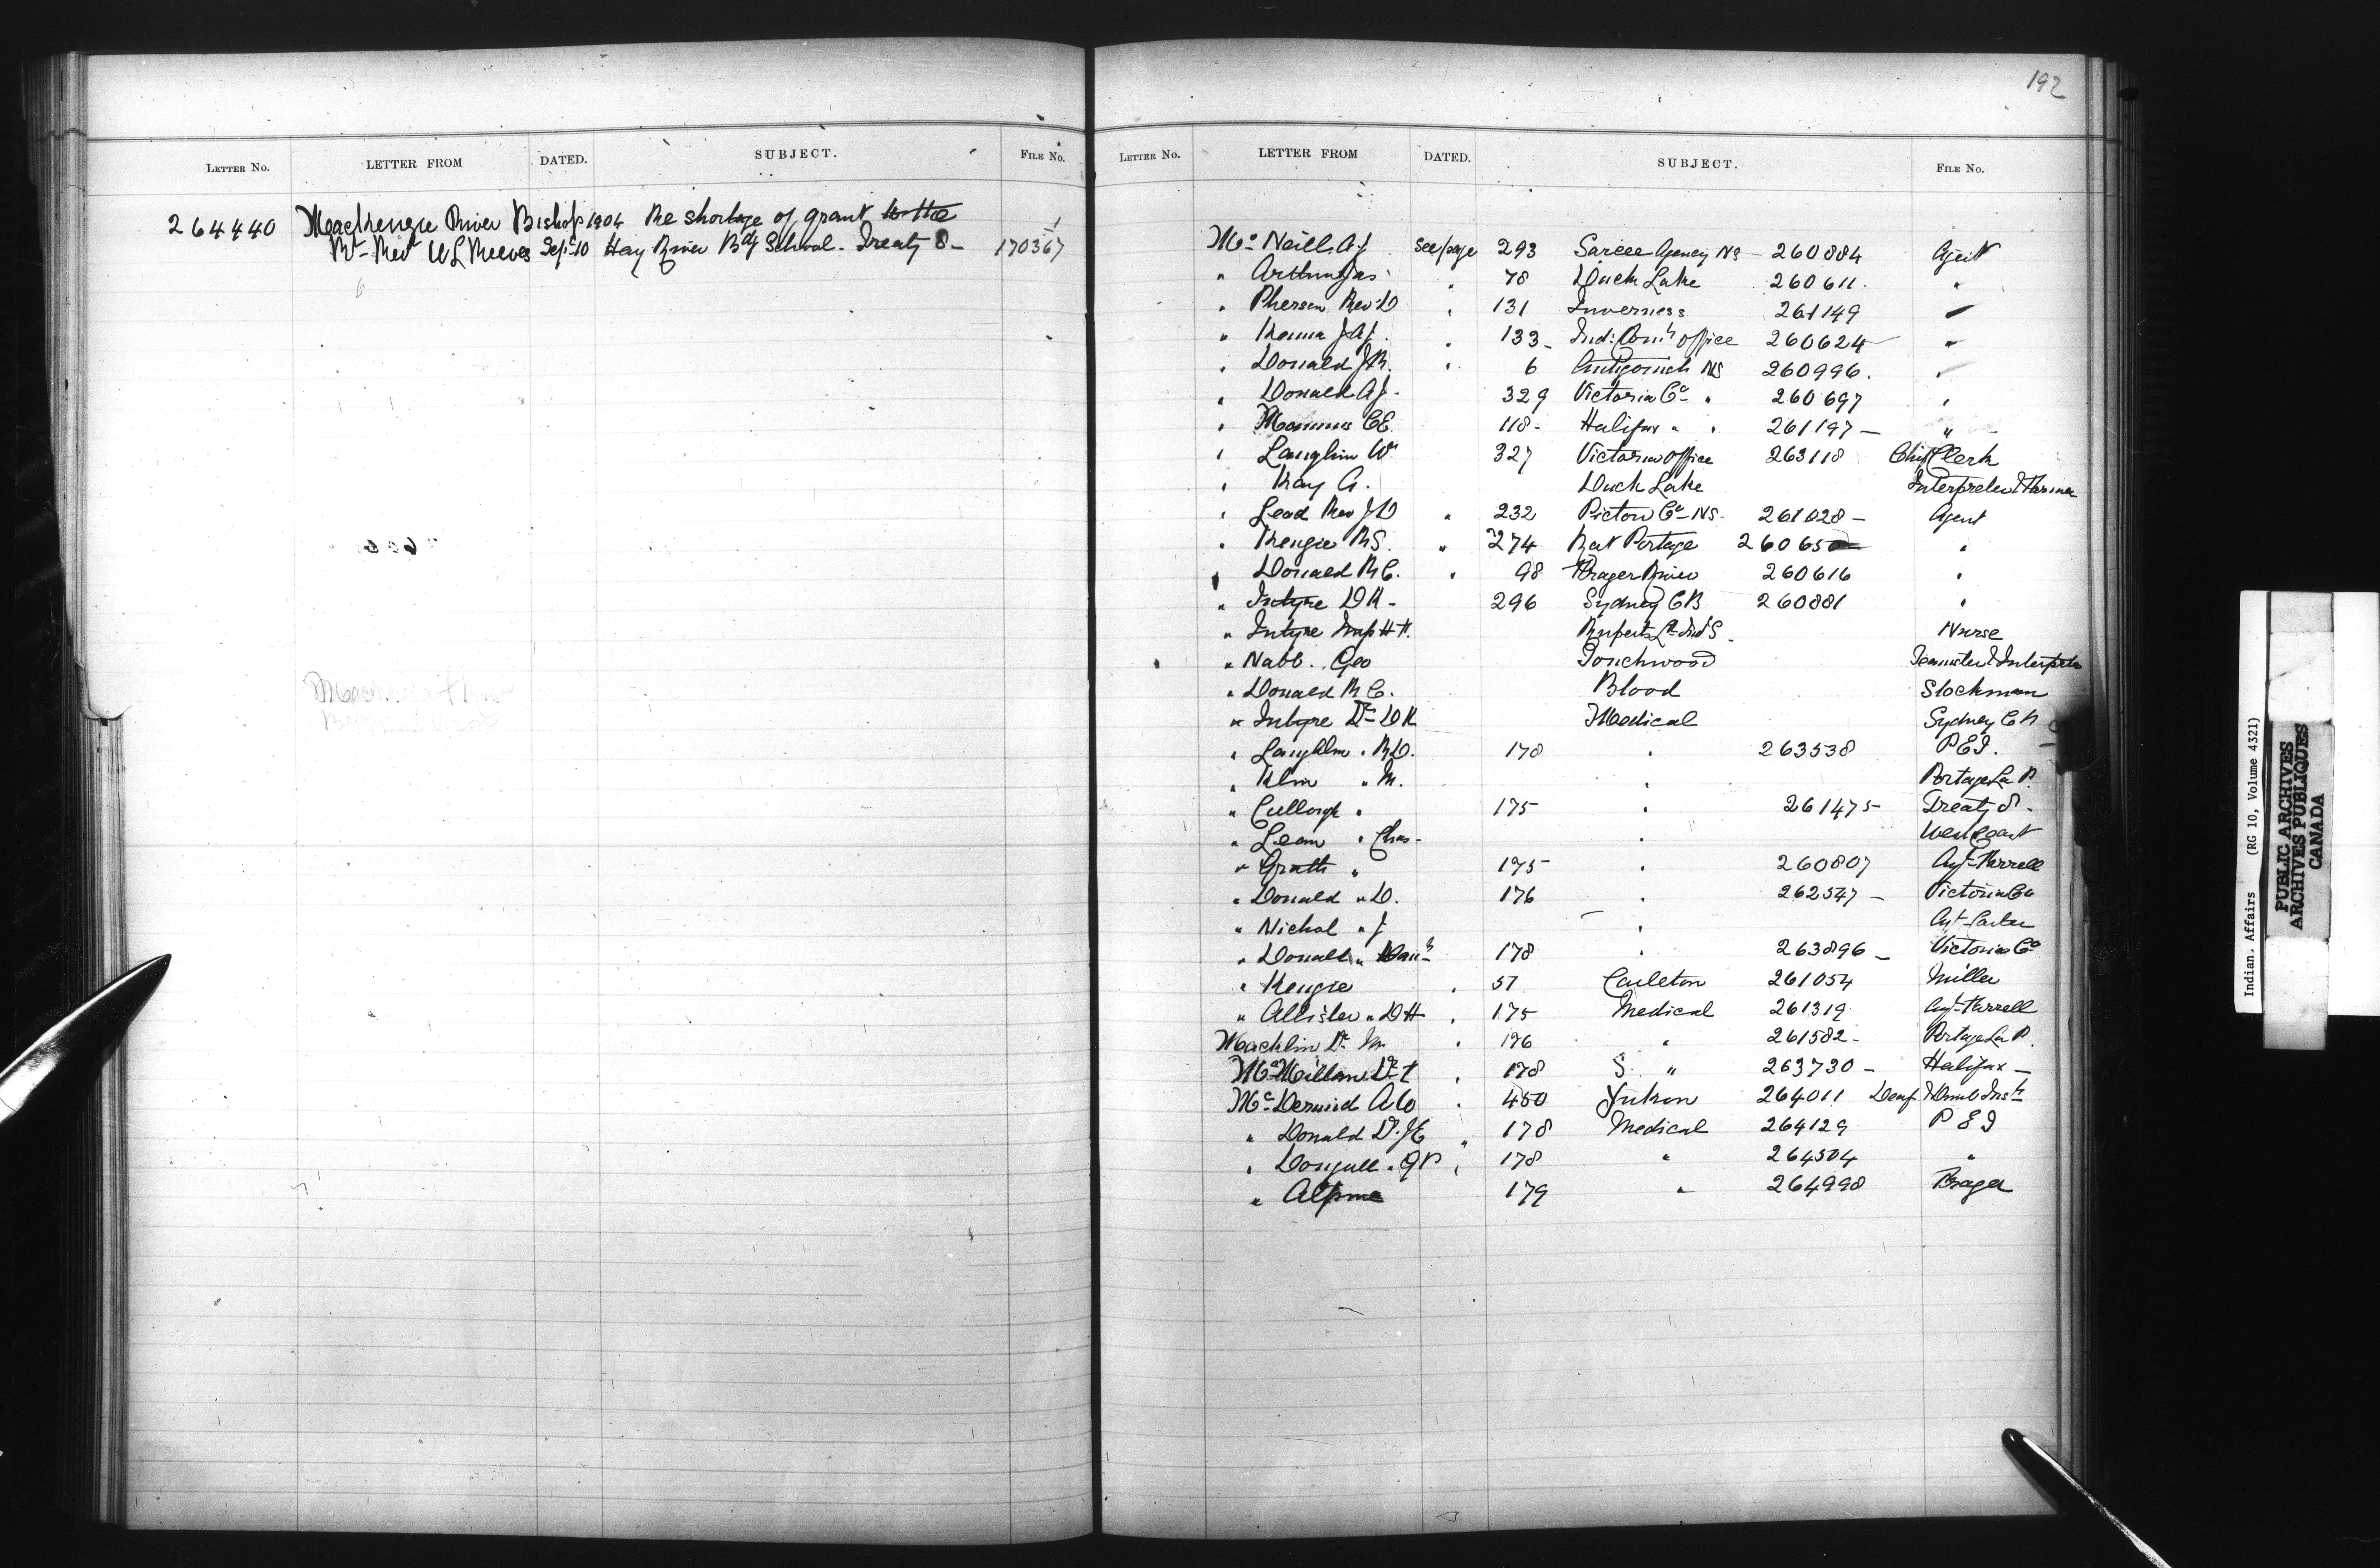 LETTER No. LETTER FROM DATED. SUBJECT. FILE No.
264440 Mackenzie River Bishop 1904 Re shortage of grant to the
Rt Rev W L Reeves Sep. 10 Hay River Bdg School - Treaty 8 - 170367
192
LETTER No. LETTER FROM DATED. SUBJECT. FILE No.
Mc Neill A J see page 293 Sarcee Agency 260884 Agent
" Arthur Jas 78 Duck Lake 260611 "
" Pherson Rev D " 131 Inverness 261149 "
" Kenna J A J " 133 - Ind: Com office 260624 "
" Donald J R " 6 Antigonish NS 260996 "
" Donald A J - 329 Victoria Co " 260697 "
" Manus C E 118 - Halifax " " 261197 - "
" Laughlin W 327 Victoria office 263118 Chief Clerk
" Kay A. Duck Lake Interpreter & Farmer
" Leod Rev J D " 232 Pictou Co NS. 261028 - Agent
" Kenzie R S. " 274 Rat Portage 260650 "
" Donald R C. " 98 Fraser River 260616 "
" Intyre D K - 296 Sydney C B 260881 "
" Intyre H. Ruperts Ld Ind S. Nurse
" Nabb. Geo Touchwood Teamster & Interpreter
" Donald R C. Blood Stockman
" Intyre Dr D K Medical Sydney C B
" Laughlin " R D. 178 " 263538 P E I.
" Klin " M. " Portage La P.
" Cullough " 175 " 261475 - Treaty 8 -
" Lean " Chas - "
" Grath " 175 " 260807 Agt - Farrell
" Donald " D. 176 " 262547 - Victoria Co
" Nichol " J " Agt - Carter
" Donald " Dan 178 " 263896 - Victoria Co
" Kenzie " 57 Carleton 261054 Miller
" Allister " D H " 175 Medical 261319 Agt - Farrell
Macklin Dr " 176 " 261582 - Portage La P.
Mc Millan Dr " 178 S. " 263730 - Halifax -
Mc Dermid A W " 450 Yukon 264011 Deaf & Dumb Inst
" Donald Dr. J E " 178 Medical 264129 P E I
" Dougall " G P " 178 " 264504 "
" Alpine 179 " 264998 Fraser
Indian Affairs (RG 10, Volume 4321)
PUBLIC ARCHIVES
ARCHIVES PUBLIQUES
CANADA